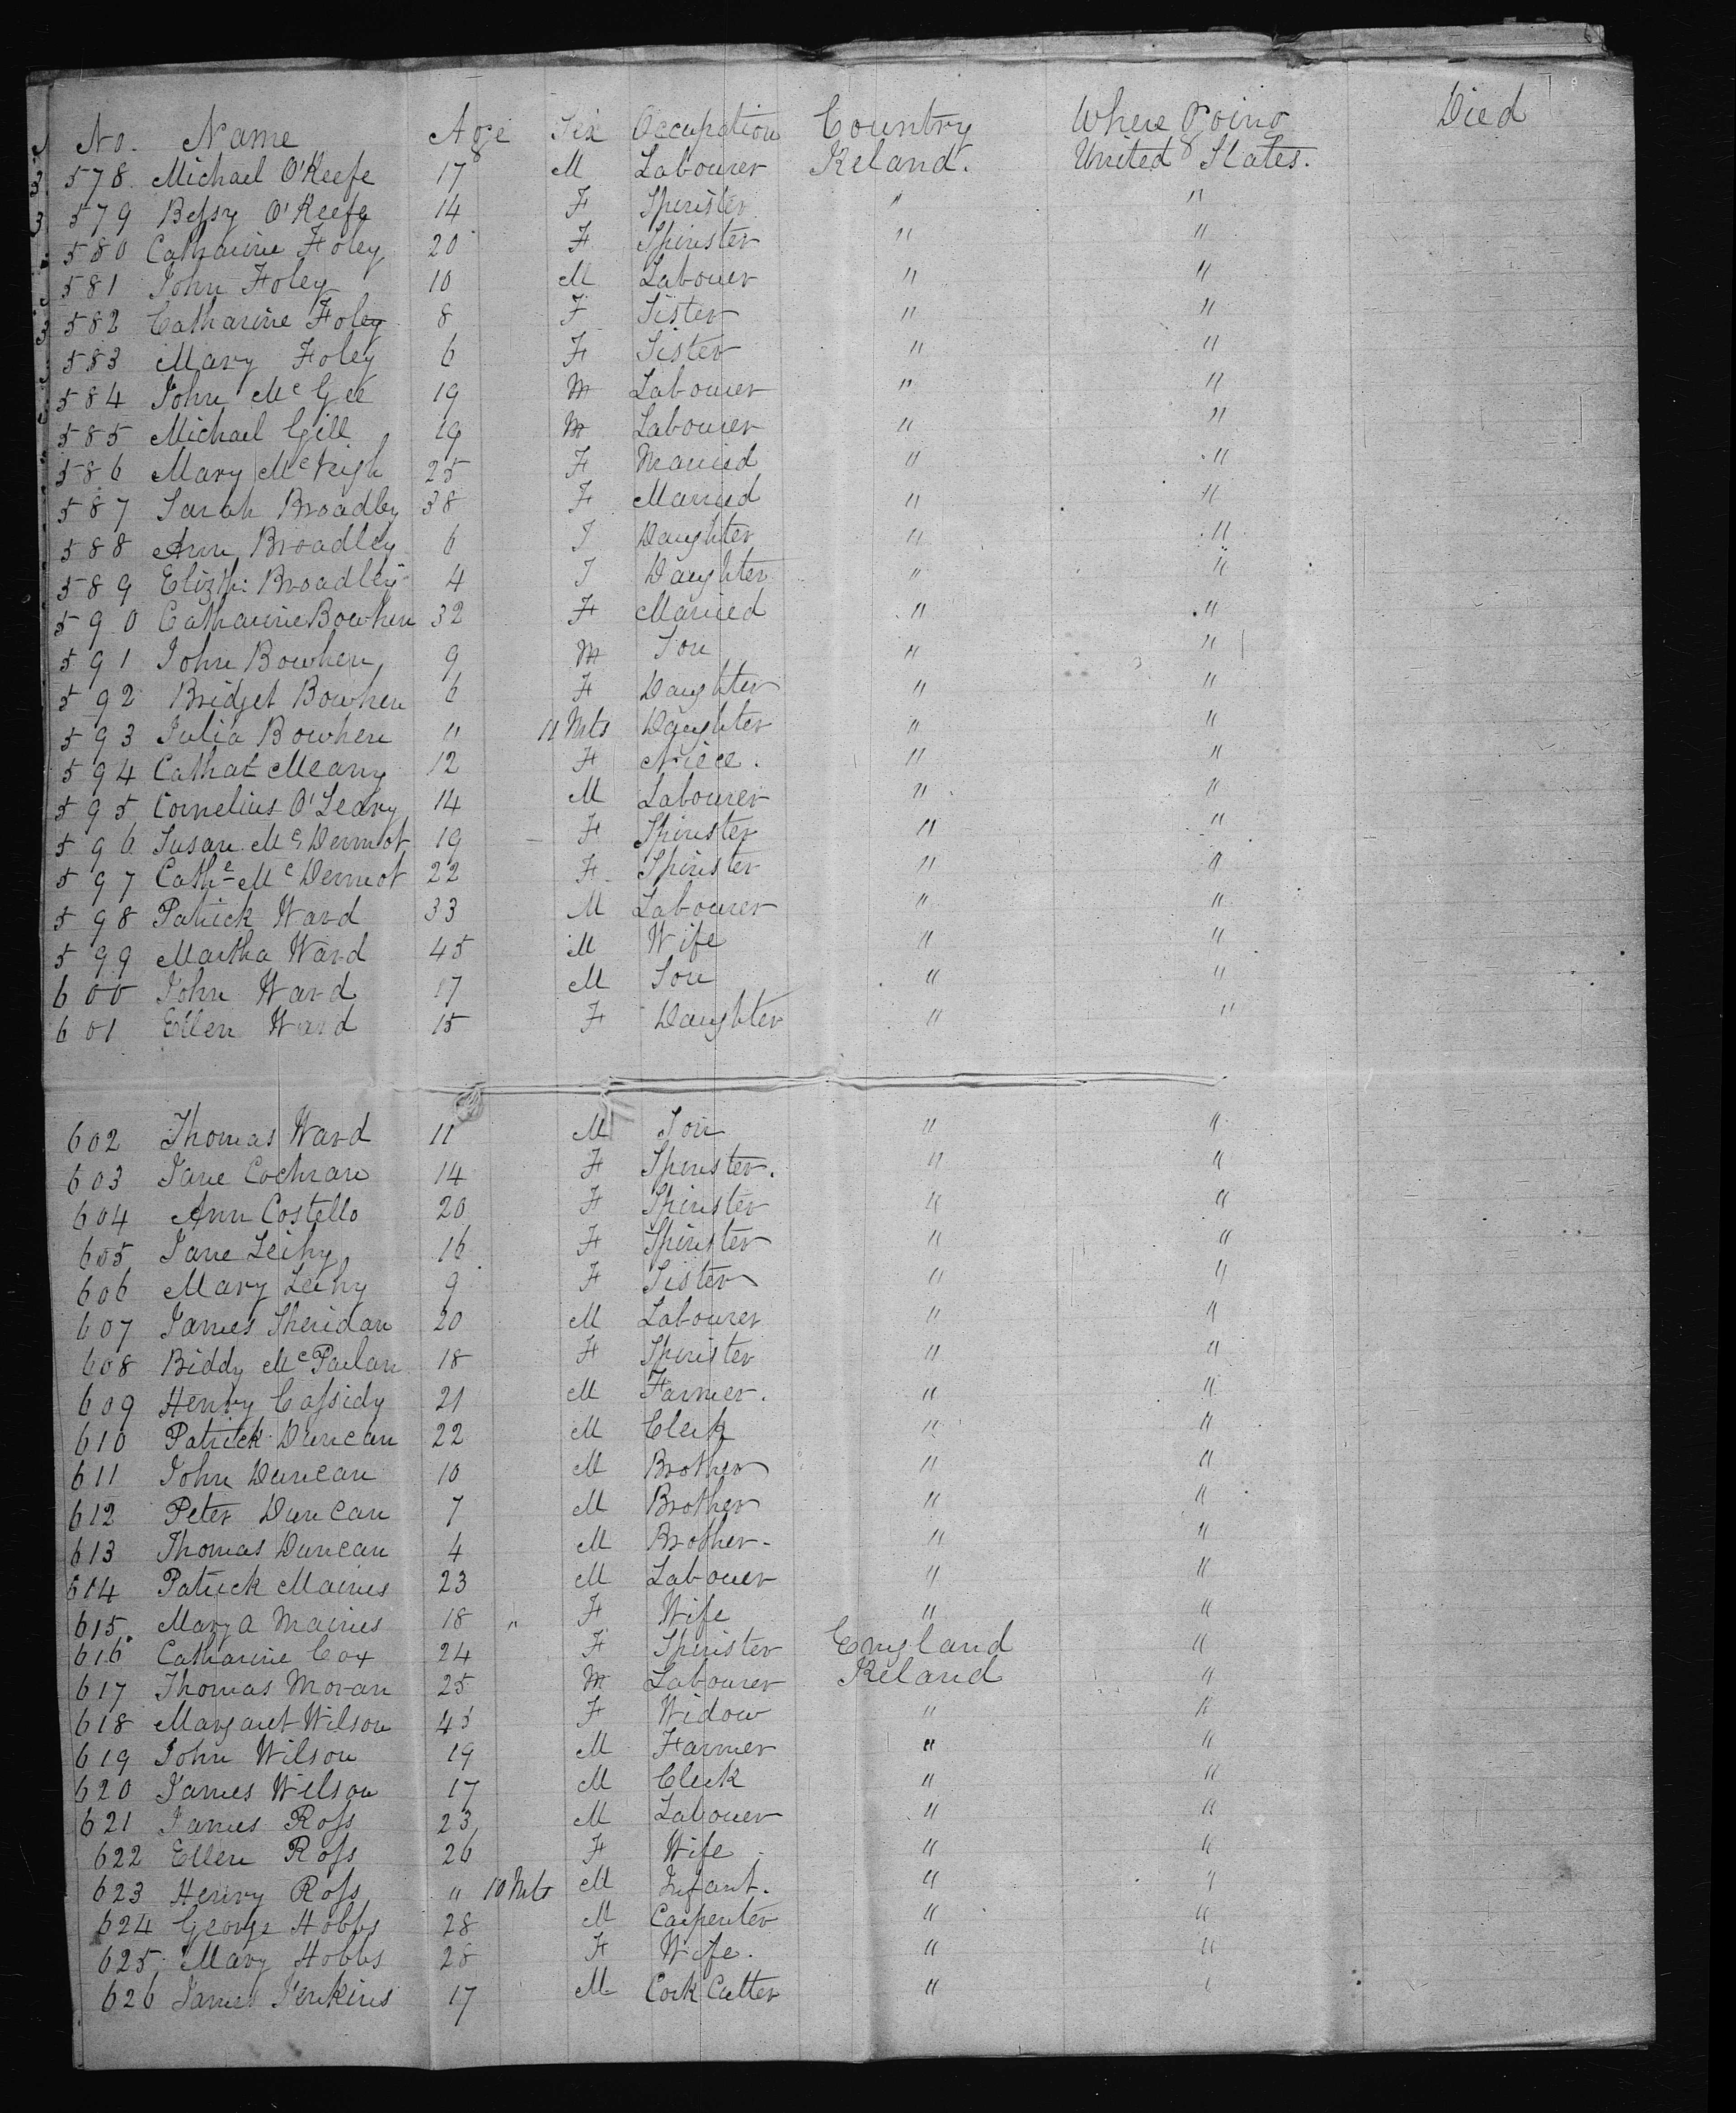 No. Name Age Sex Occupation Country Where Going Died
578 Michael O'Keefe 17 M Labourer Ireland. United States.
579 Bessy O'Keefe 14 F Spinster " "
580 Catharine Foley 20 F Spinster " "
581 John Foley 10 M Labouer " "
582 Catharine Foley 8 F Sister " "
583 Mary Foley 6 F Sister " "
584 John McGee 19 M Labourer " "
585 Michael Gill 19 M Labourer " "
586 Mary McVeigh 25 F Married " "
587 Sarah Broadley 38 F Married " "
588 Ann Broadley 6 F Daughter " "
589 Elizth: Broadley 4 F Daughter " "
590 Catharine Bowhen 32 F Married " "
591 John Bowhen 9 M Son " "
592 Bridget Bowhen 6 F Daughter " "
593 Julia Bowhen " 11 Mts Daughter " "
594 Cathat Meany 12 F Niece. " "
595 Cornelius O'Leary 14 M Labourer " "
596 Susan McDermot 19 F Spinster " "
597 Cathe McDermot 22 F Spinster " "
598 Patrick Ward 33 M Labourer " "
599 Martha Ward 45 M Wife " "
600 John Ward 17 M Son " "
601 Ellen Ward 15 F Daughter " "
602 Thomas Ward 11 M Son " "
603 Jane Cochran 14 F Spinster. " "
604 Ann Costello 20 F Spinster " "
605 Jane Leihy 16 F Spinster " "
606 Mary Leihy 9 F Sister " "
607 James Sheridan 20 M Labourer " "
608 Biddy McParlan 18 F Spinster " "
609 Henry Cassidy 21 M Farmer. " "
610 Patrick Duncan 22 M Clerk " "
611 John Duncan 10 M Brother " "
612 Peter Duncan 7 M Brother " "
613 Thomas Duncan 4 M Brother- " "
614 Patrick Mainis 23 M Labouer " "
615 Mary A Mainis 18 " F Wife " "
616 Catharine Cox 24 F Spinster England "
617 Thomas Moran 25 M Labourer Ireland "
618 Margaret Wilson 45 F Widow " "
619 John Wilson 19 M Farmer " "
620 James Wilson 17 M Clerk " "
621 James Ross 23 M Labouer " "
622 Ellen Ross 26 F Wife " "
623 Henry Ross " 10 Mts M Infant. " "
624 George Hobbs 28 M Carpenter " "
625 Mary Hobbs 28 F Wife. " "
626 James Jenkins 17 M Cork Cutter " "